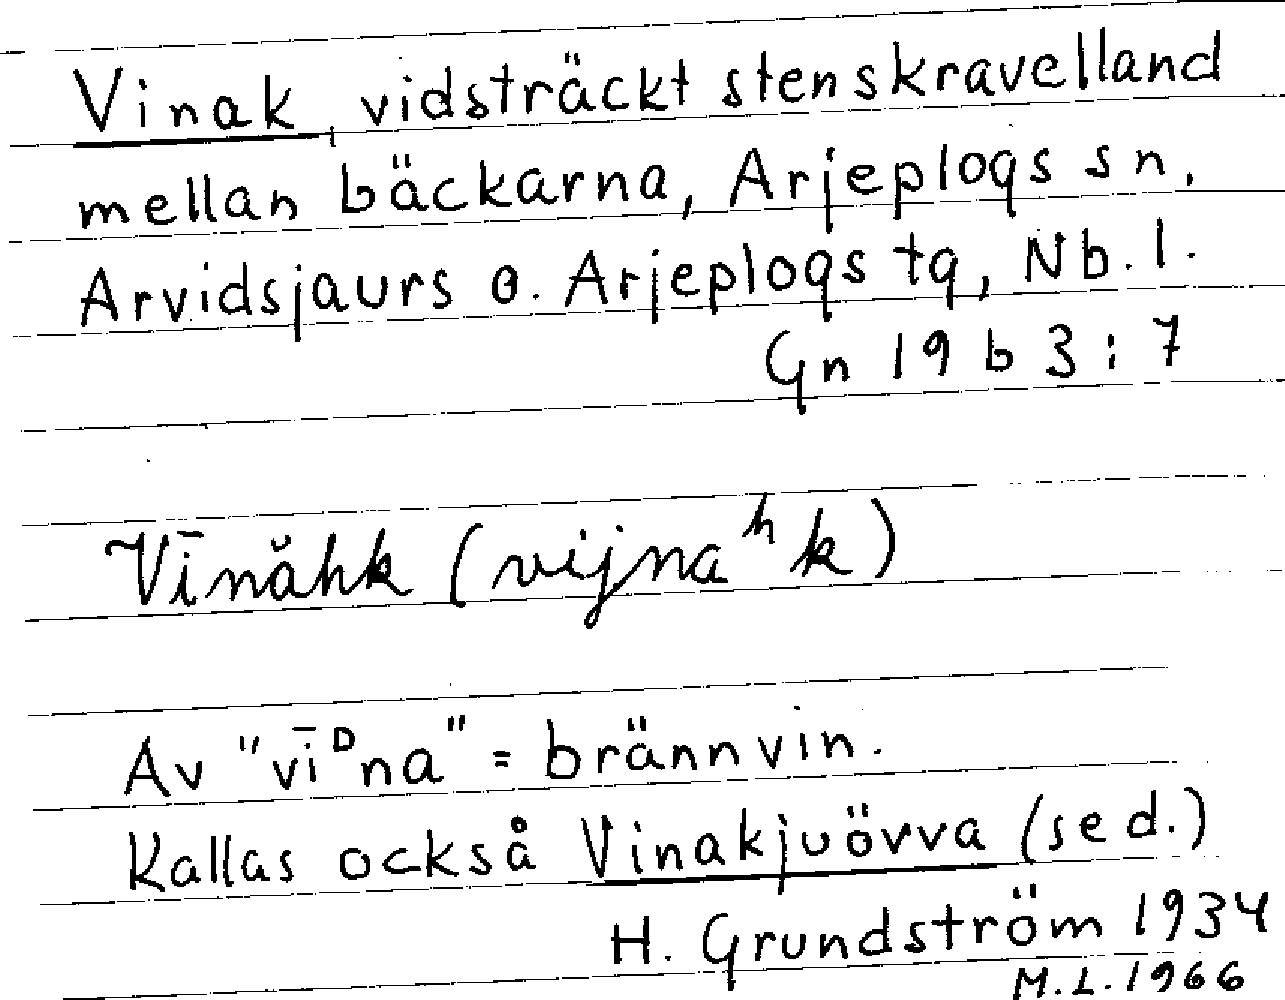 Vinak, vidsträckt stenskravelland
mellan bäckarna, Arjeplogs sn,
Arvidsjaurs o. Arjeplogs tg, Nb. l.
Gn 19 b 3 : 7
Vīnăhk (vijnaʰk)
Av "vīᴰna" = brännvin.
Kallas också Vinakjuövva (se d.)
H. Grundström 1934
M.L. 1966